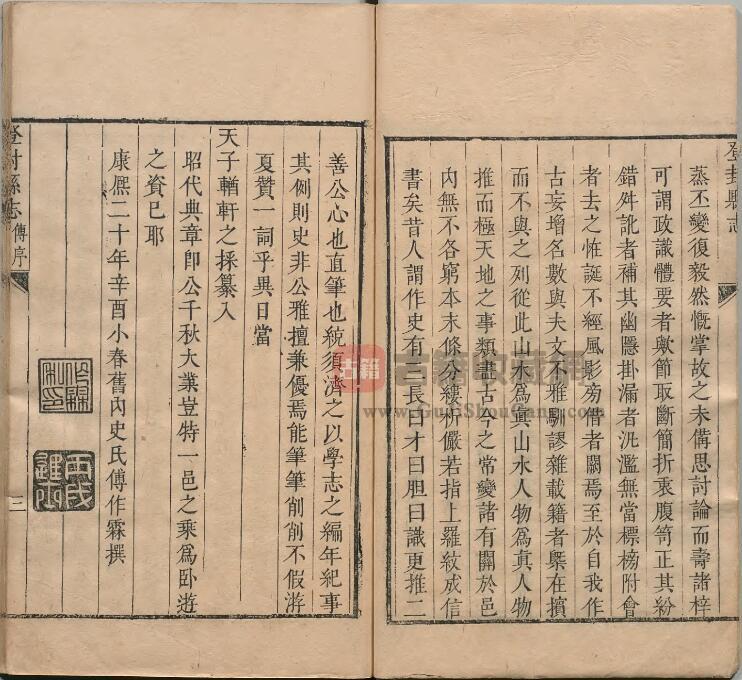 登封縣志
蒸丕變復毅然慨掌故之未備思討論而壽諸梓
可謂政識體要者歟節取斷簡折衷腹笥正其紛
錯舛訛者補其幽隱掛漏者汎濫無當標榜附會
者去之恠誕不經風影旁借者闕焉至於自我作
古妄增名數與夫文不雅馴認雜載籍者槩在擯
而不與之列從此山水為眞山水人物為真人物
推而極天地之事類盡古今之常變諸有關於邑
內無不各窮本末條分縷析儼若指上羅紋成信
書矣昔人謂作史有三長曰才曰胆曰識更推二
善公心也直筆也統須濟之以學志之編年紀事
其例則史非公雅擅兼優焉能筆筆削削不假游
夏贊一詞乎異日當
天子輶軒之採纂入
昭代典章卽公千秋大業豈特一邑之乘為卧遊
之資已耶
康熈二十年辛酉小春舊內史氏傅作霖撰
登封縣志
傅序
三
古籍
古籍收藏網
www.GuJiShouCang.com